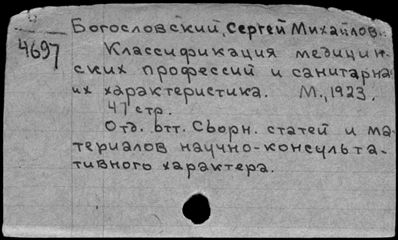 Богословский, Сергей Михайлов.
4697
Классификация медицин-
ских профессий и санитарна
их характеристика. М., 1923.
47 стр.
Отд. отт. Сборн. статей и ма-
териалов научно-консульта-
тивного характера.